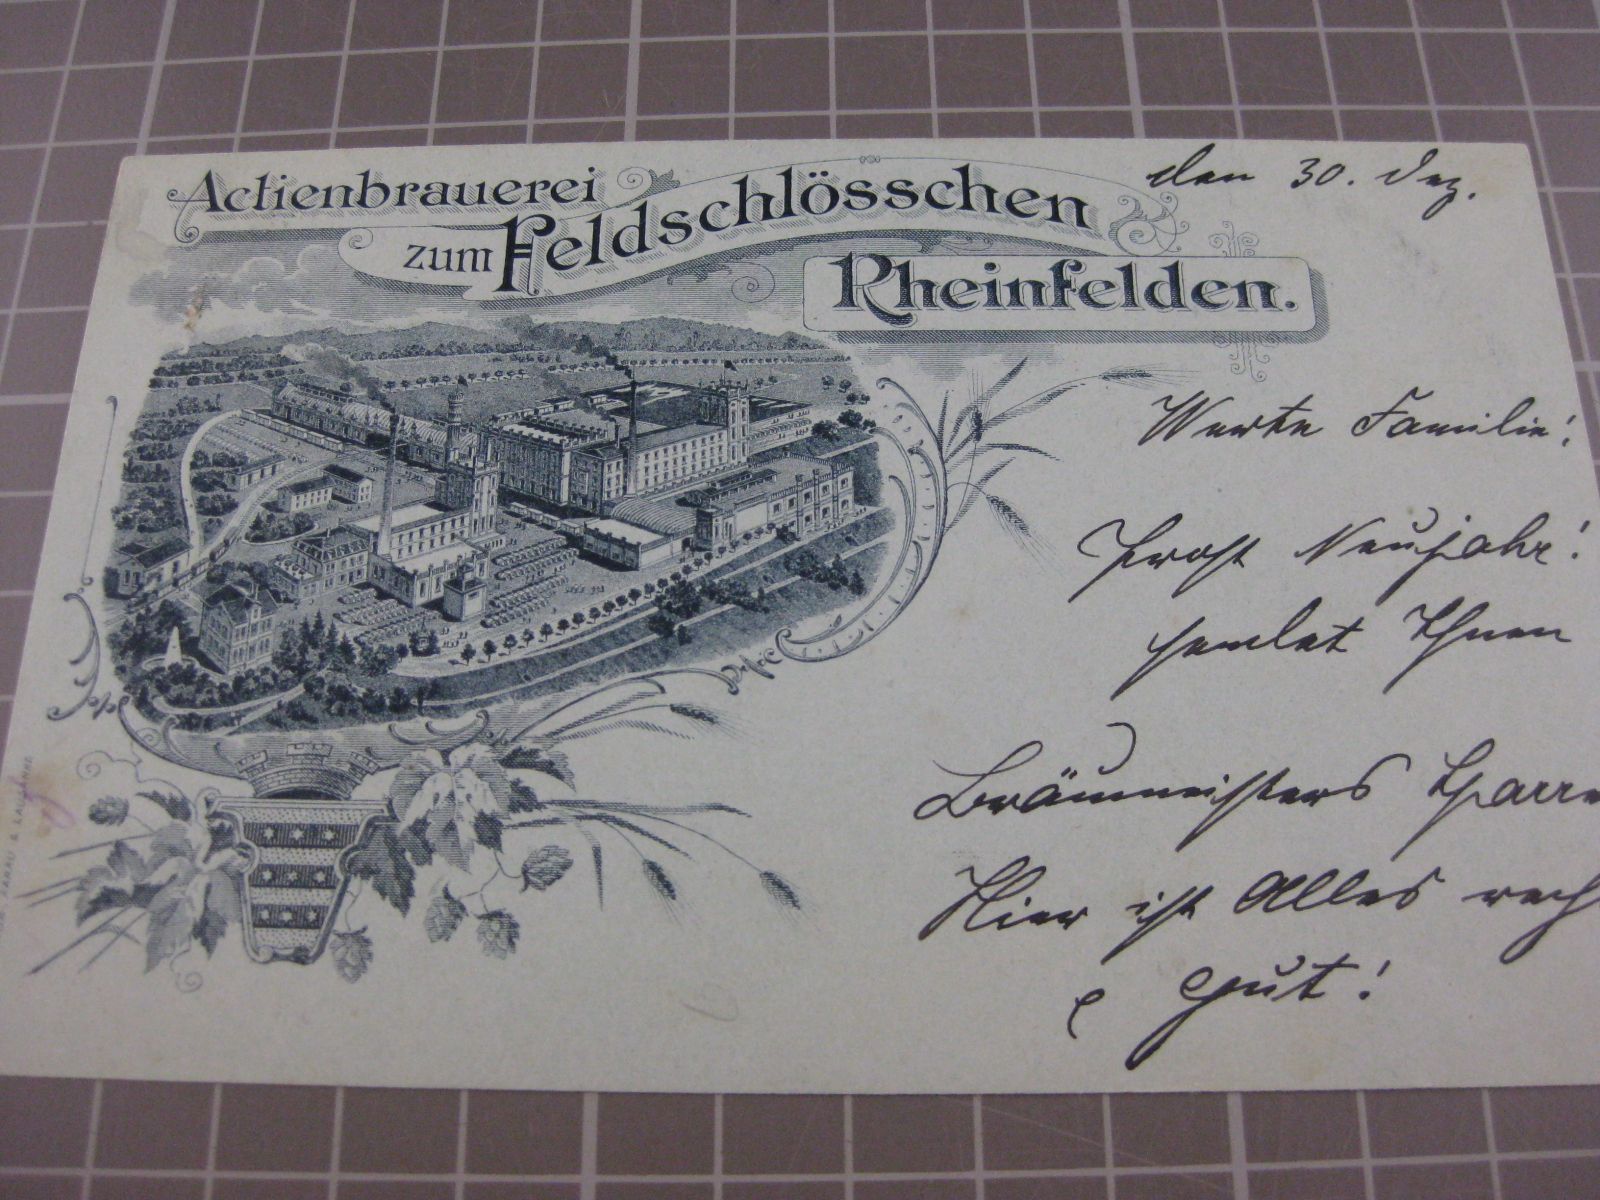 Actienbrauerei
zum Feldschlösschen
Rheinfelden.
den 30. Dez.
Werte Familie!
Prosit Neujahr!
sendet Ihnen
Bräumeisters
Hier ist Alles recht
gut!